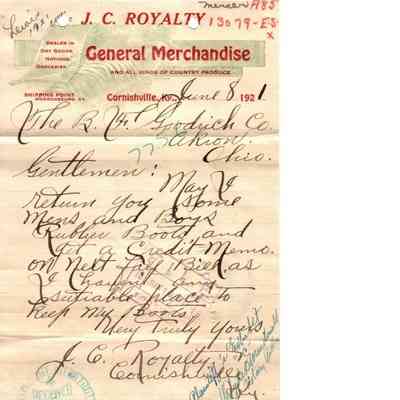 Mercer A85
13079-ES
x
J. C. ROYALTY
DEALER IN
DRY GOODS
NOTIONS
GROCERIES
General Merchandise
AND ALL KINDS OF COUNTRY PRODUCE
SHIPPING POINT
HARRODSBURG, KY.
Cornishville, Ky., June 8 1921
The B. F. Goodrich Co.
Akron,
Ohio.
Gentlemen:
May I
return you some
Mens and Boys
Rubber Boots and
Get a Credit Memo.
on Next Fay Bill as
I haven't any
suitable place to
Keep My Boots
Very Truly Yours
J. C. Royalty
Cornishville
Ky.